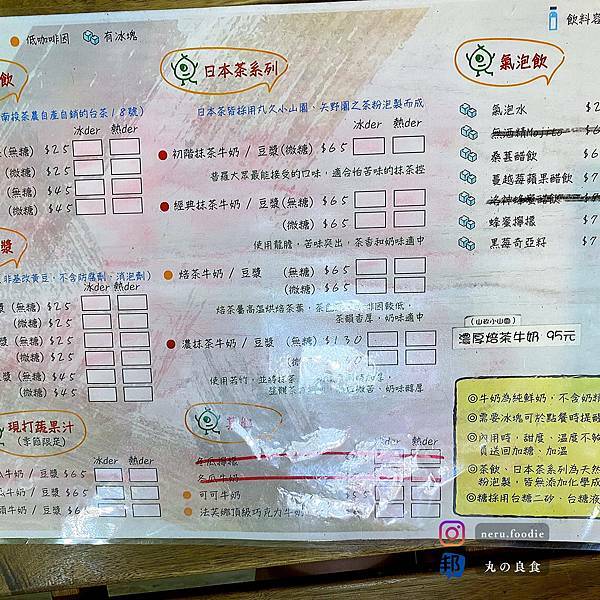 低咖啡因 有冰塊
飲料容
飲
南投茶農自產自銷的台茶18號)
冰der 熱der
(無糖) $25
(微糖) $25
(無糖) $45
(微糖) $45
漿
非基改黃豆，不含防腐劑、消泡劑)
冰der 熱der
(無糖) $25
(微糖) $25
漿 (無糖) $45
(微糖) $45
現打蔬果汁
(季節限定)
冰der 熱der
瓜牛奶 / 豆漿 $65
牛奶 / 豆漿 $65
牛奶 / 豆漿 $65
日本茶系列
日本茶皆採用丸久小山園、矢野園之茶粉泡製而成
冰der 熱der
初階抹茶牛奶 / 豆漿(微糖) $65
普羅大眾最能接受的口味，適合怕苦味的抹茶控
經典抹茶牛奶 / 豆漿(無糖) $65
(微糖) $65
使用龍膽，苦味突出，茶香和奶味適中
焙茶牛奶 / 豆漿 (無糖) $65
(微糖) $65
焙茶屬高溫烘焙茶葉，茶色
因較低，
茶韻香厚，奶味適中
濃抹茶牛奶 / 豆漿 (無糖) $130
使用若竹，
奶味醇厚
冰der 熱der
冬瓜檸檬
冬瓜牛奶
可可牛奶
法芙娜頂級巧克力牛奶
氣泡飲
氣泡水
無酒精Mojito
桑葚醋飲
蔓越莓蘋果醋飲 $7
洛神蜂蜜醋飲
蜂蜜檸檬 $7
黑莓奇亞籽 $7
(山政小山園)
濃厚焙茶牛奶 95元
◎牛奶為純鮮奶，不含奶精
◎需要冰塊可於點餐時提醒
◎內用時，甜度、溫度不夠
員送回加糖、加溫
◎茶飲、日本茶系列為天然
粉泡製，皆無添加化學成
◎糖採用台糖二砂、台糖液
neru.foodie
邦 丸の良食